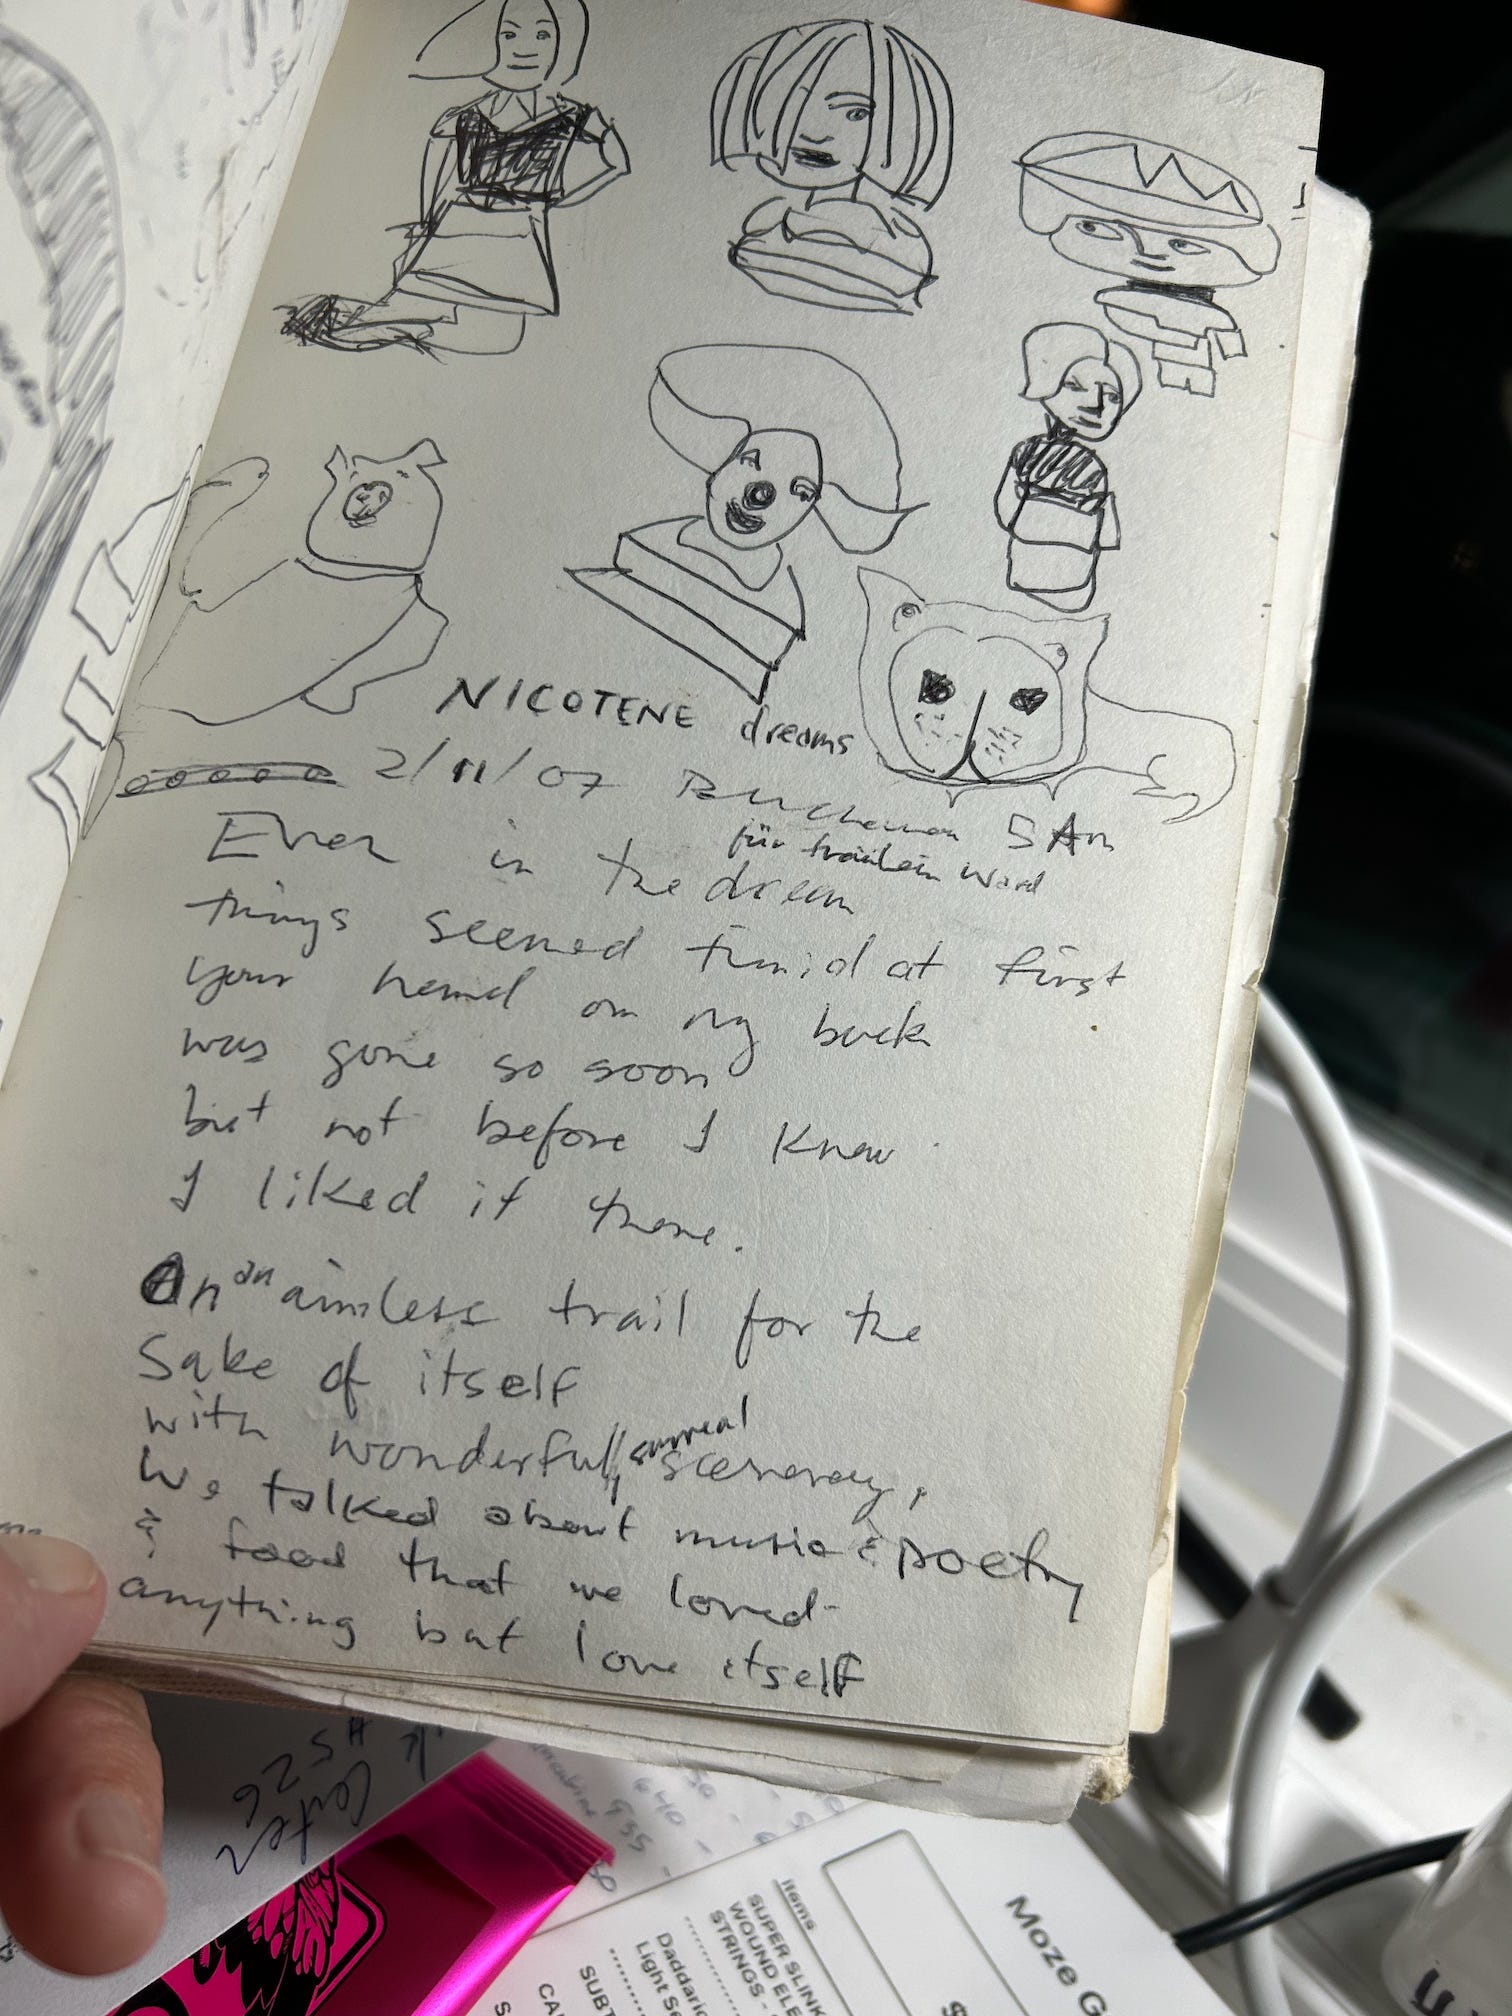 NICOTENE dreams
2/11/07 Buchanan 5 Am
für fräulein Ward
Even in the dream
things seemed timid at first
your hand on my back
was gone so soon
but not before I knew
I liked it there.
On an aimless trail for the
sake of itself
with wonderful, surreal scenerey,
We talked about music & poetry
& food that we loved-
anything but love itself
Moze G
Items
SUPER SLINK
WOUND ELE
STRINGS -
Daddario
Light Se
SUBT
CA
$
640 -
935 -